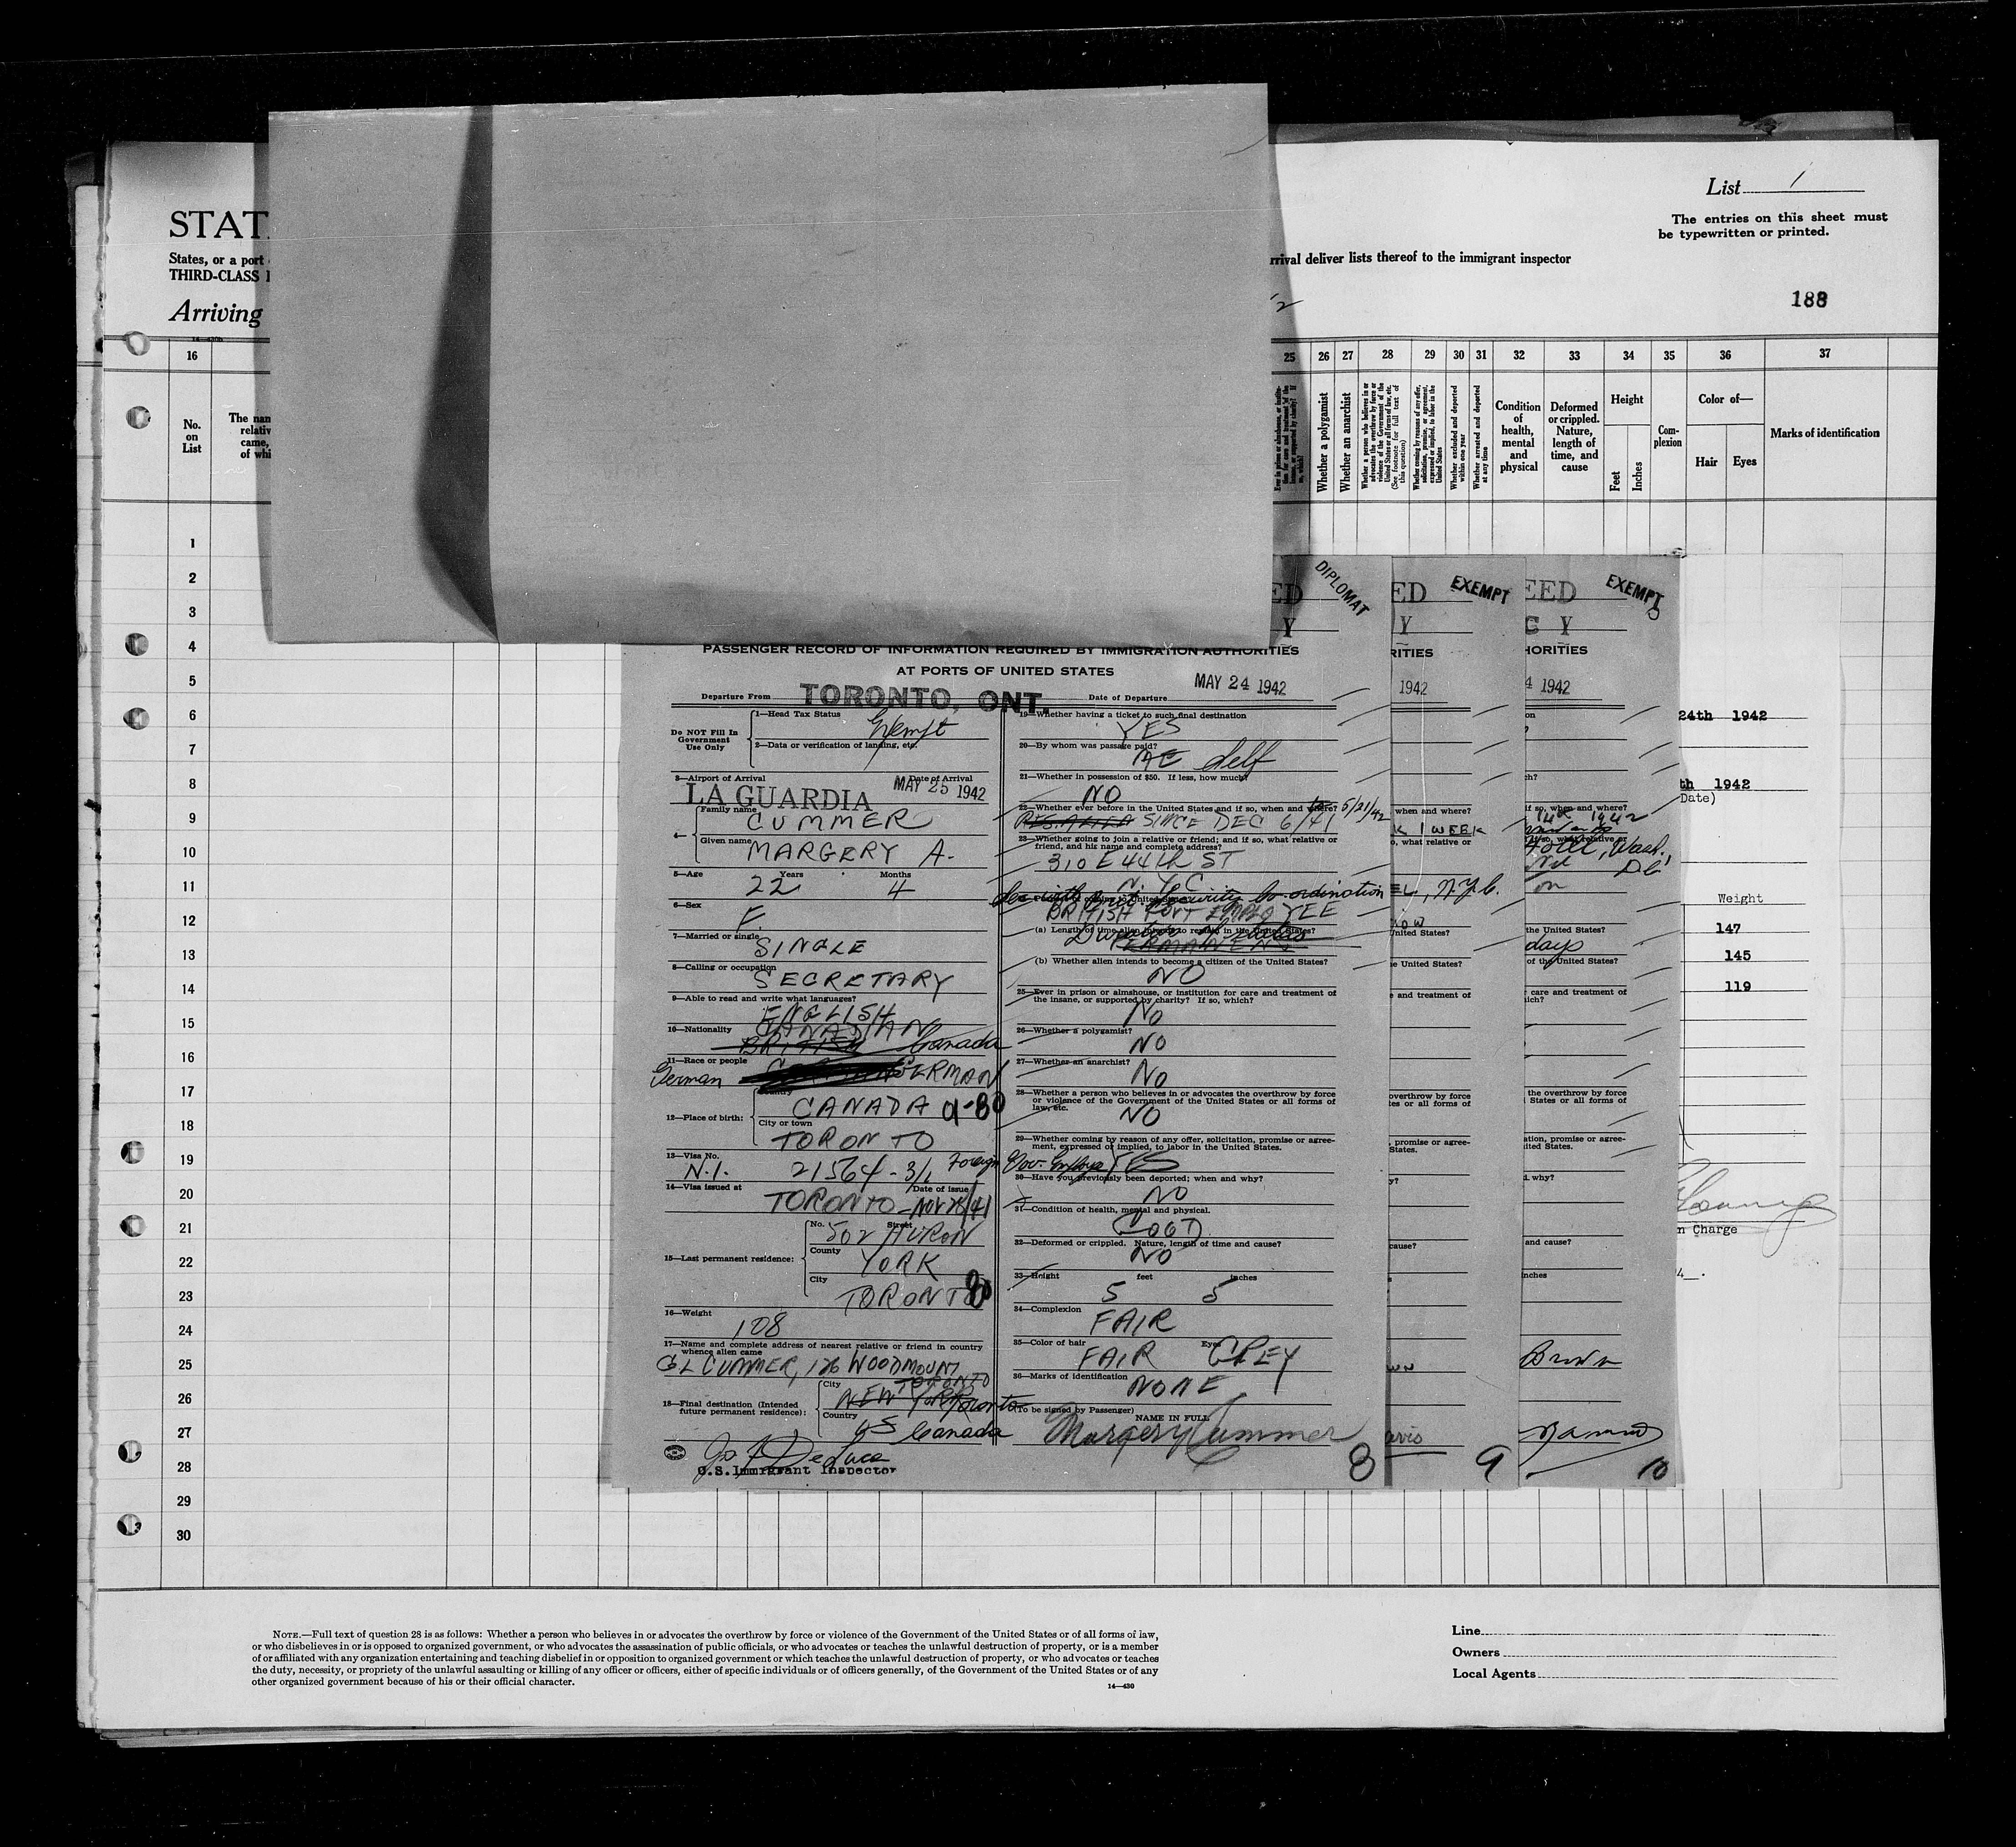 List 1
STAT
The entries on this sheet must
be typewritten or printed.
States, or a port
rrival deliver lists thereof to the immigrant inspector
THIRD-CLASS
Arriving
188
16 25 26 27 28 29 30 31 32 33 34 35 36 37
No.
on
List
The nam
relativ
came,
of whi
Whether a polygamist
Whether an anarchist
Whether a person who believes in or
advocates the overthrow by force or
violence of the Government of the
United States or all forms of law, etc.
(See footnote for full text of
this question)
Whether coming by reasons of any offer,
solicitation, promise, or agreement,
expressed or implied, to labor in the
United States
Whether excluded and deported
within one year
Whether arrested and deported
at any time
Condition
of
health,
mental
and
physical
Deformed
or crippled.
Nature,
length of
time, and
cause
Height
Feet
Inches
Com-
plexion
Color of—
Hair
Eyes
Marks of identification
1
2
3
4
5
6
7
8
9
10
11
12
13
14
15
16
17
18
19
20
21
22
23
24
25
26
27
28
29
30
ED DIPLOMAT
Y
PASSENGER RECORD OF INFORMATION REQUIRED BY IMMIGRATION AUTHORITIES
AT PORTS OF UNITED STATES
Departure From TORONTO, ONT. Date of Departure MAY 24 1942
Do NOT Fill In
Government
Use Only
1—Head Tax Status
Exempt
2—Data or verification of landing, etc.
3—Airport of Arrival Date of Arrival
LA GUARDIA MAY 25 1942
Family name
CUMMER
Given name
MARGERY A.
5—Age Years Months
22 4
6—Sex
F.
7—Married or single
SINGLE
8—Calling or occupation
SECRETARY
9—Able to read and write what languages?
ENGLISH
10—Nationality CANADIAN
BRITISH Canada
11—Race or people
German GERMAN
12—Place of birth:
Country
CANADA 9-80
City or town
TORONTO
13—Visa No.
N.I. 21564 - 3/1 Foreign
14—Visa issued at Date of issue
TORONTO - NOV 28/41
15—Last permanent residence:
No. Street
502 HURON
County
YORK
City
TORONTO 80
16—Weight
108
17—Name and complete address of nearest relative or friend in country
whence alien came
G L CUMMER, 126 WOODMOUNT
TORONTO
18—Final destination (Intended
future permanent residence):
City
NEW YORK Toronto
Country
US Canada
U.S. Immigrant Inspector
19—Whether having a ticket to such final destination
YES
20—By whom was passage paid?
ME Self
21—Whether in possession of $50. If less, how much?
NO
22—Whether ever before in the United States and if so, when and where? to 5/21/42
SINCE DEC 6/41
23—Whether going to join a relative or friend; and if so, what relative or
friend, and his name and complete address?
310 E 44th ST
N.Y.C.
Security Co-ordination
BRITISH GOVT EMPLOYEE
(a) Length of time alien intends to remain in the United States?
PERMANENT
(b) Whether alien intends to become a citizen of the United States?
NO
25—Ever in prison or almshouse, or institution for care and treatment of
the insane, or supported by charity? If so, which?
No
26—Whether a polygamist?
NO
27—Whether an anarchist?
NO
28—Whether a person who believes in or advocates the overthrow by force
or violence of the Government of the United States or all forms of
law, etc.
NO
29—Whether coming by reason of any offer, solicitation, promise or agree-
ment, expressed or implied, to labor in the United States.
Gov. Employe YES
30—Have you previously been deported; when and why?
NO
31—Condition of health, mental and physical.
GOOD
32—Deformed or crippled. Nature, length of time and cause?
NO
33—Height feet inches
5 5
34—Complexion
FAIR
35—Color of hair Eyes
FAIR GREY
36—Marks of identification
NONE
(To be signed by Passenger)
NAME IN FULL
Margery Cummer
8
ED EXEMPT
Y
RITIES
1942
when and where?
K 1 WEEK
o, what relative or
EL, N.Y.C.
United States?
e United States?
e and treatment of
overthrow by force
tes or all forms of
promise or agree-
States.
y?
cause?
wn
avis
9
EED EXEMPT
C Y
HORITIES
4 1942
ch?
if so, when and where?
1942
Hotel, Wash.
D.C.
the United States?
days
of the United States?
care and treatment of
ich?
the overthrow by force
l States or all forms of
ation, promise or agree-
ited States.
d. why?
and cause?
inches
Brown
10
24th 1942
th 1942
(Date)
Weight
147
145
119
n Charge
NOTE.—Full text of question 28 is as follows: Whether a person who believes in or advocates the overthrow by force or violence of the Government of the United States or of all forms of law,
or who disbelieves in or is opposed to organized government, or who advocates the assassination of public officials, or who advocates or teaches the unlawful destruction of property, or is a member
of or affiliated with any organization entertaining and teaching disbelief in or opposition to organized government or which teaches the unlawful destruction of property, or who advocates or teaches
the duty, necessity, or propriety of the unlawful assaulting or killing of any officer or officers, either of specific individuals or of officers generally, of the Government of the United States or of any
other organized government because of his or their official character.
14—430
Line
Owners
Local Agents